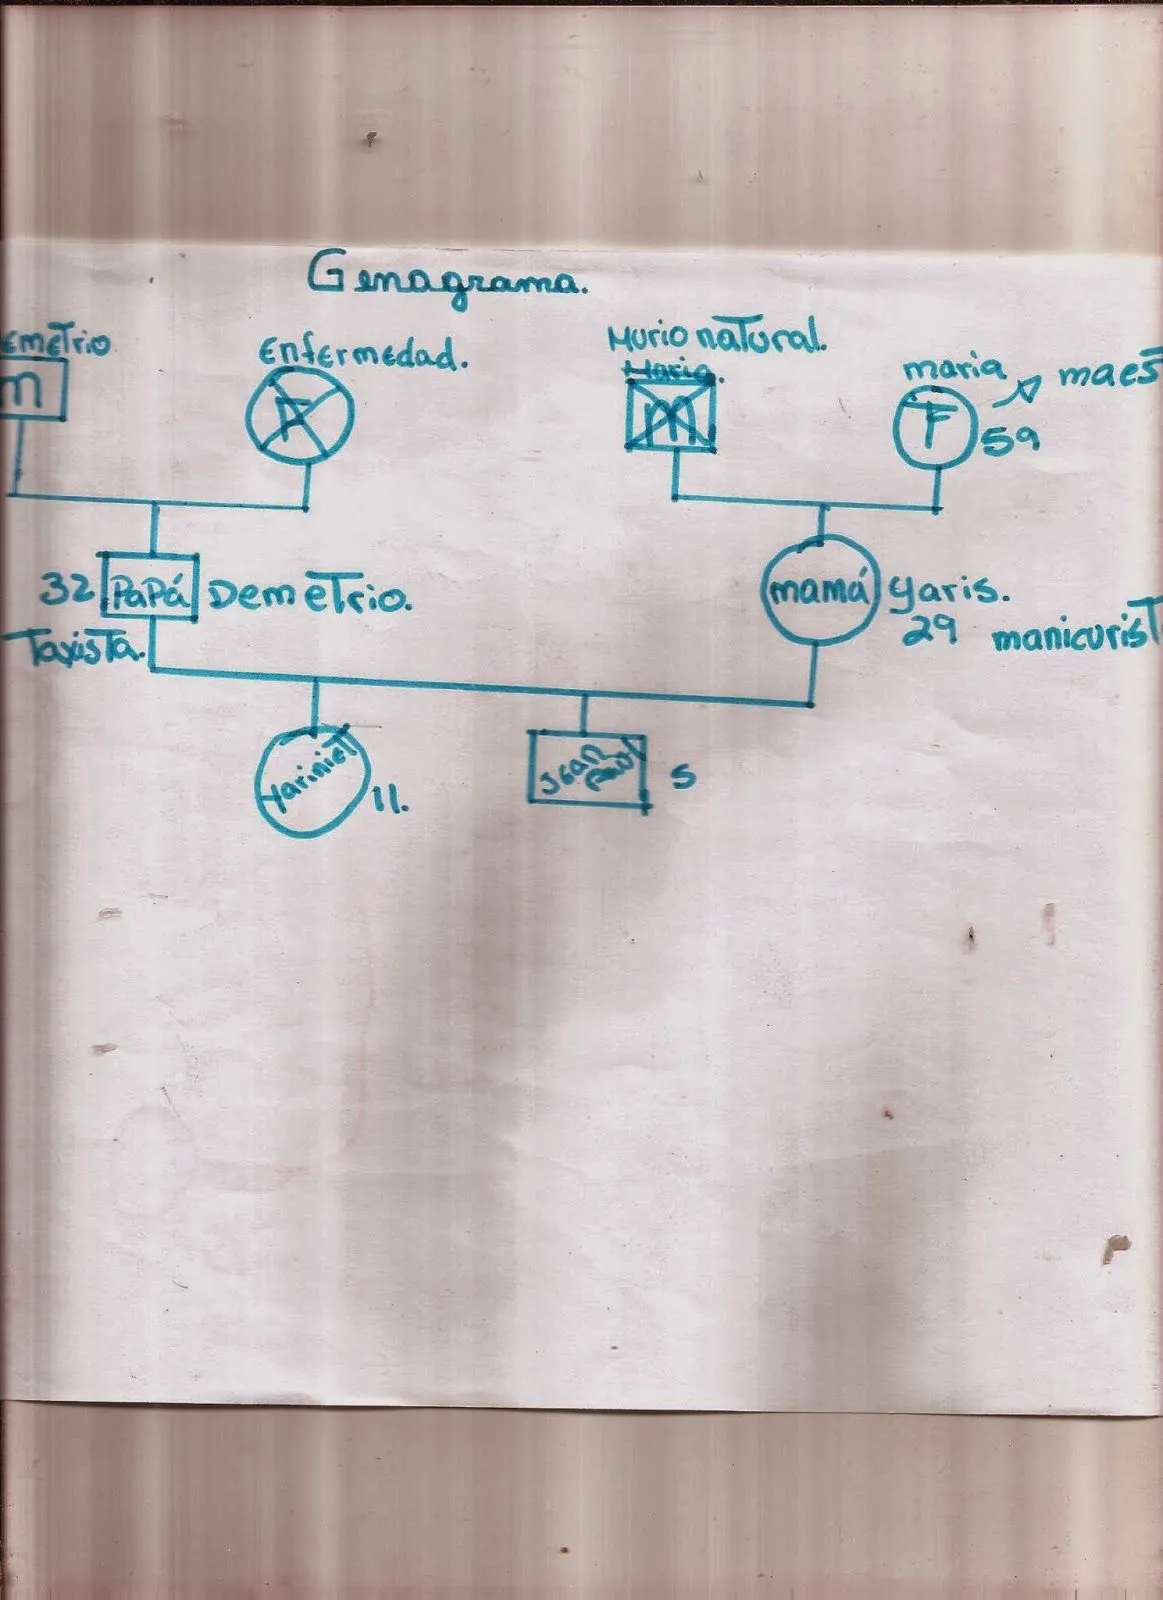 Genagrama.
emetrio
Enfermedad.
Murio natural.
Maria.
maria
maes
m
F
m
F
59
32
PaPá
Demetrio.
mamá
Yaris.
29
Taxista.
manicurist
Yariniet
11.
Jean
Paul
5